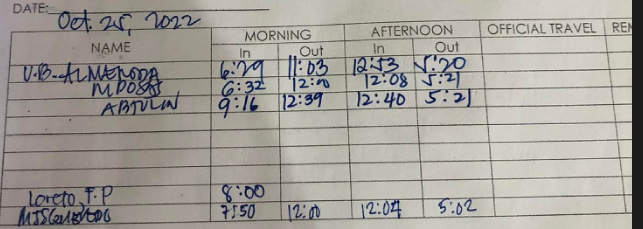 DATE: Oct. 25, 2022
NAME MORNING AFTERNOON OFFICIAL TRAVEL
In Out In Out
V.B. 6:29 11:03 12:53 5:20
6:32 12:08 5:21
9:16 12:39 12:40 5:21
Loreto, F.P 8:00
7:50 12:00 12:04 5:02